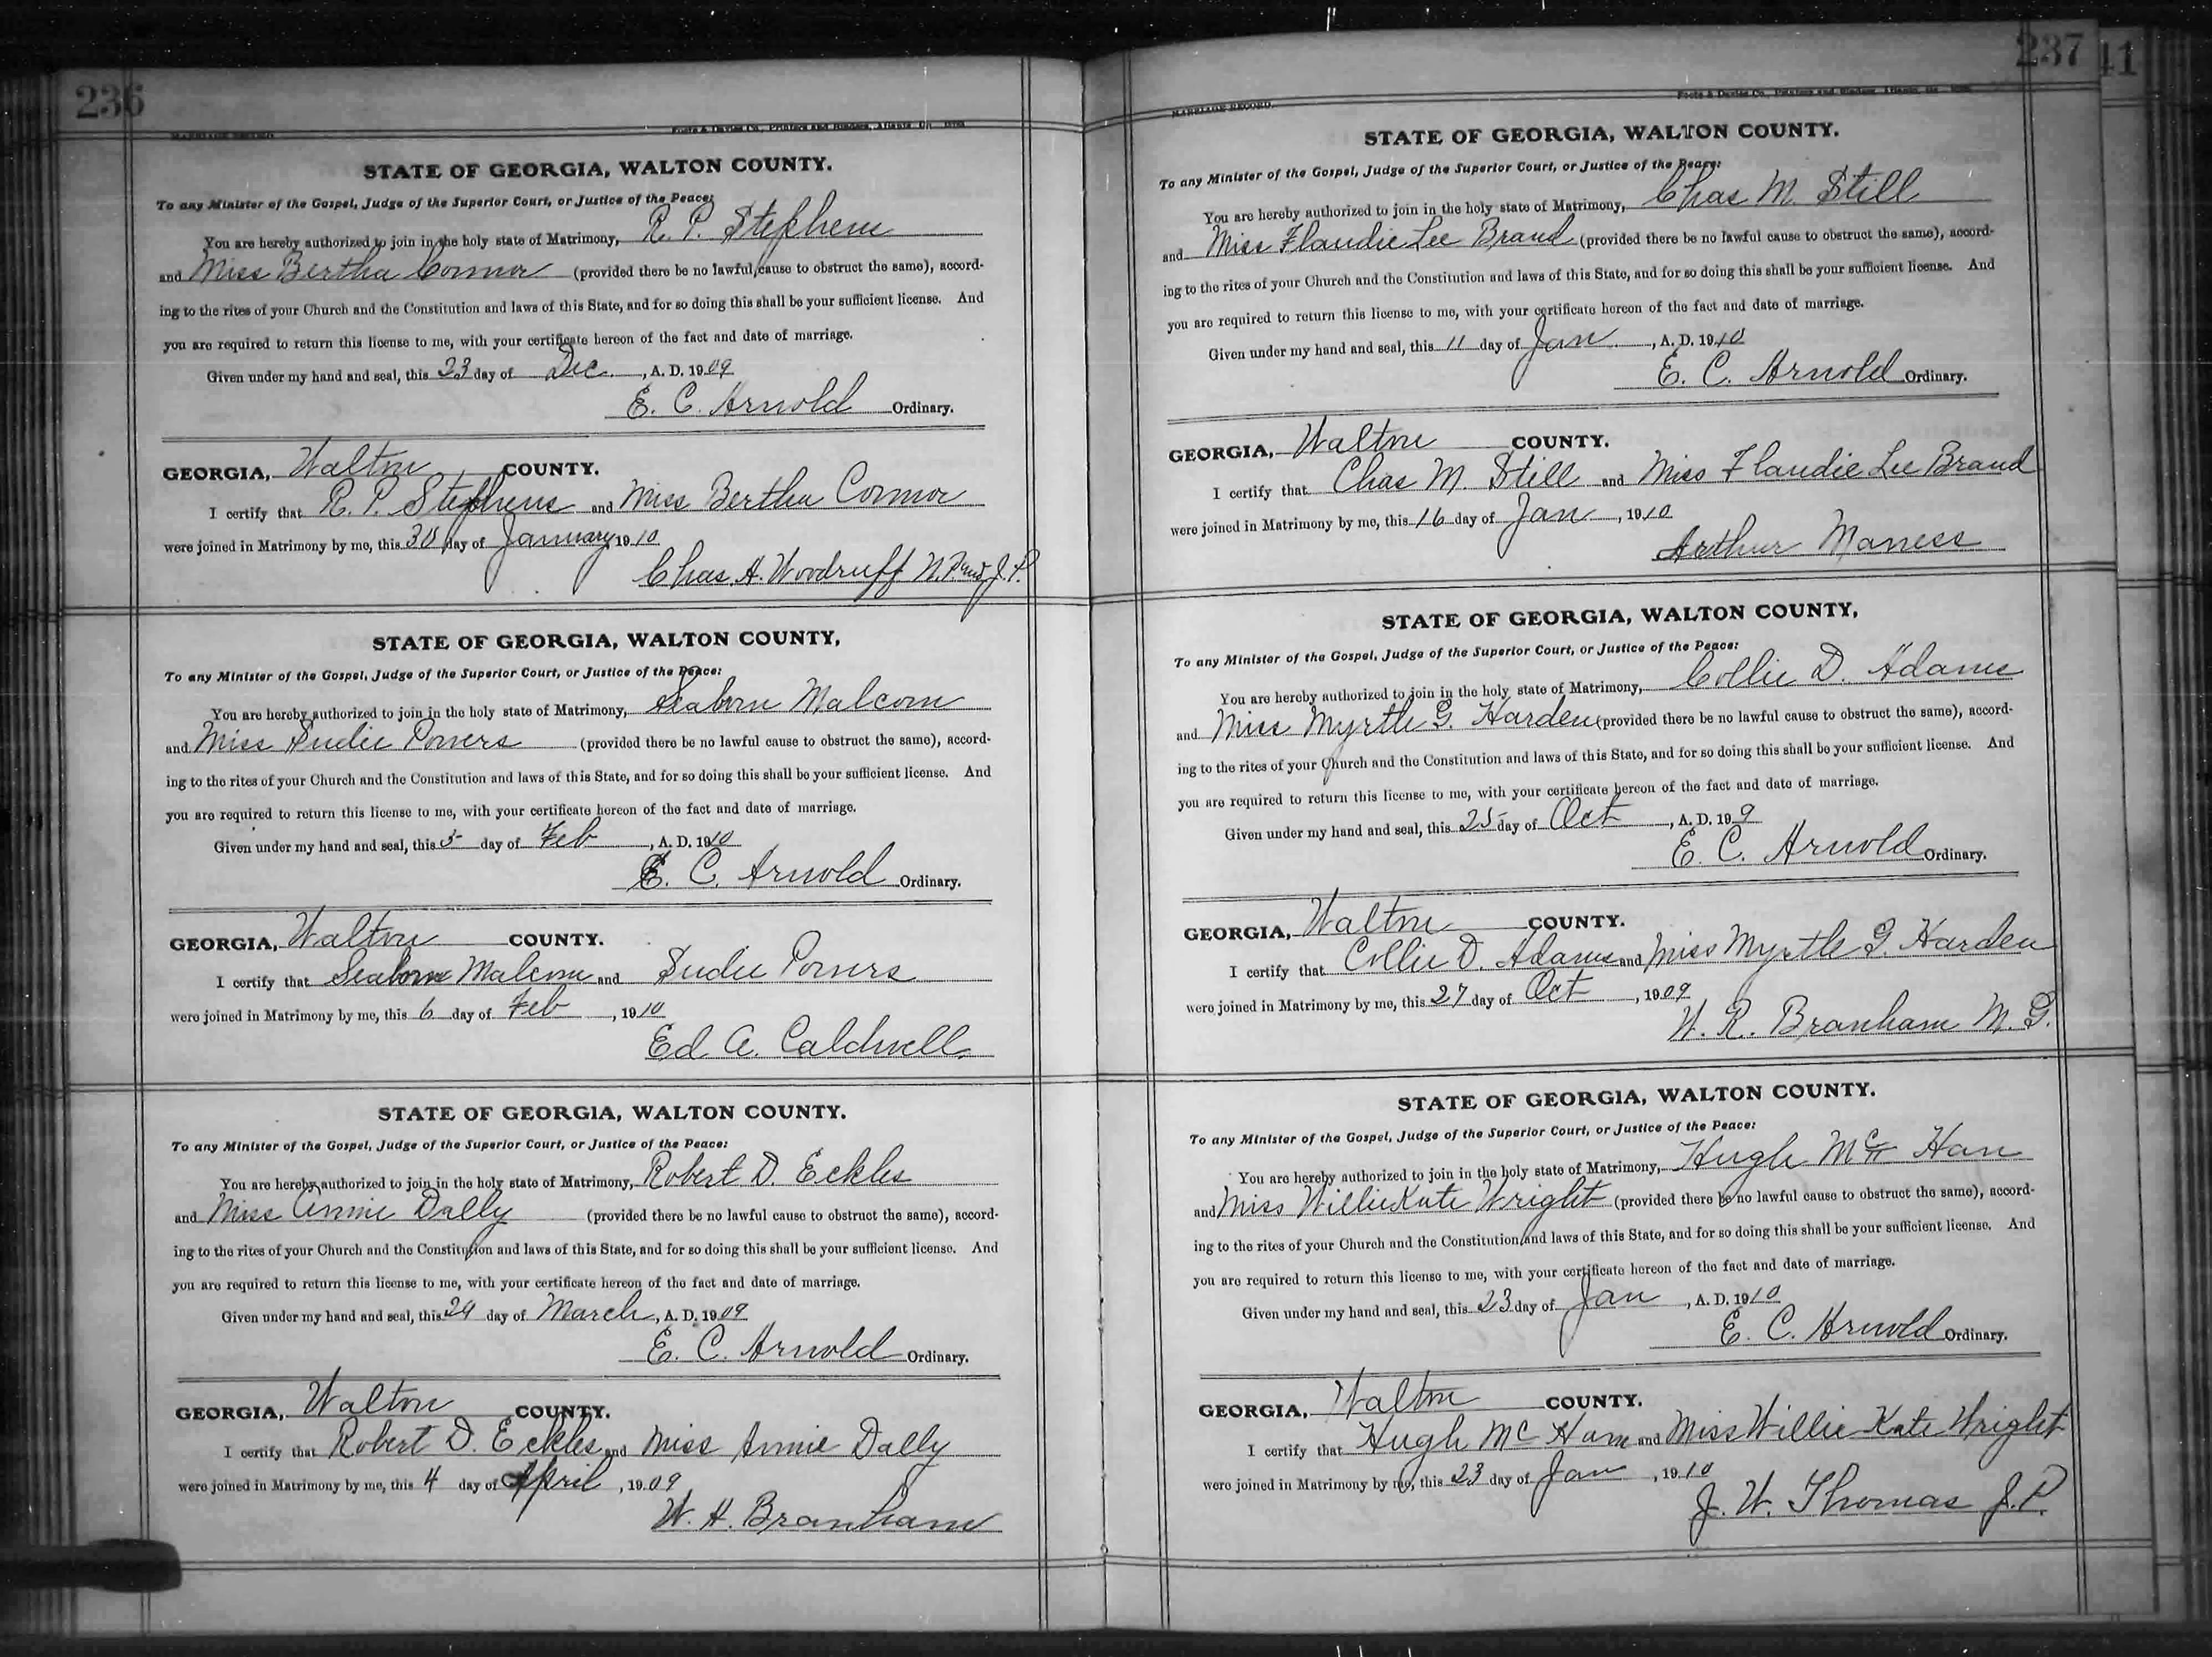 236
MARRIAGE RECORD.
Foote & Davies Co., Printers and Binders, Atlanta, Ga.
STATE OF GEORGIA, WALTON COUNTY.
To any Minister of the Gospel, Judge of the Superior Court, or Justice of the Peace:
You are hereby authorized to join in the holy state of Matrimony, R. P. Stephens
and Miss Bertha Connor (provided there be no lawful cause to obstruct the same), accord-
ing to the rites of your Church and the Constitution and laws of this State, and for so doing this shall be your sufficient license. And
you are required to return this license to me, with your certificate hereon of the fact and date of marriage.
Given under my hand and seal, this 23 day of Dec., A. D. 1909
E. C. Arnold Ordinary.
GEORGIA, Walton COUNTY.
I certify that R. P. Stephens and Miss Bertha Connor
were joined in Matrimony by me, this 30 day of January 1910
Chas. A. Woodruff N.P. and J.P.
STATE OF GEORGIA, WALTON COUNTY.
To any Minister of the Gospel, Judge of the Superior Court, or Justice of the Peace:
You are hereby authorized to join in the holy state of Matrimony, Seaborn Malcom
and Miss Sudie Powers (provided there be no lawful cause to obstruct the same), accord-
ing to the rites of your Church and the Constitution and laws of this State, and for so doing this shall be your sufficient license. And
you are required to return this license to me, with your certificate hereon of the fact and date of marriage.
Given under my hand and seal, this 5 day of Feb, A. D. 1910
E. C. Arnold Ordinary.
GEORGIA, Walton COUNTY.
I certify that Seaborn Malcom and Sudie Powers
were joined in Matrimony by me, this 6 day of Feb, 1910
Ed A. Caldwell
STATE OF GEORGIA, WALTON COUNTY.
To any Minister of the Gospel, Judge of the Superior Court, or Justice of the Peace:
You are hereby authorized to join in the holy state of Matrimony, Robert D. Eckles
and Miss Annie Dally (provided there be no lawful cause to obstruct the same), accord-
ing to the rites of your Church and the Constitution and laws of this State, and for so doing this shall be your sufficient license. And
you are required to return this license to me, with your certificate hereon of the fact and date of marriage.
Given under my hand and seal, this 24 day of March, A. D. 1909
E. C. Arnold Ordinary.
GEORGIA, Walton COUNTY.
I certify that Robert D. Eckles and Miss Annie Dally
were joined in Matrimony by me, this 4 day of April, 1909
W. H. Branham
237
41
MARRIAGE RECORD.
Foote & Davies Co., Printers and Binders, Atlanta, Ga.
STATE OF GEORGIA, WALTON COUNTY.
To any Minister of the Gospel, Judge of the Superior Court, or Justice of the Peace:
You are hereby authorized to join in the holy state of Matrimony, Chas M. Still
and Miss Flaudie Lee Braud (provided there be no lawful cause to obstruct the same), accord-
ing to the rites of your Church and the Constitution and laws of this State, and for so doing this shall be your sufficient license. And
you are required to return this license to me, with your certificate hereon of the fact and date of marriage.
Given under my hand and seal, this 11 day of Jan, A. D. 1910
E. C. Arnold Ordinary.
GEORGIA, Walton COUNTY.
I certify that Chas M. Still and Miss Flaudie Lee Braud
were joined in Matrimony by me, this 16 day of Jan, 1910
Arthur Maness
STATE OF GEORGIA, WALTON COUNTY.
To any Minister of the Gospel, Judge of the Superior Court, or Justice of the Peace:
You are hereby authorized to join in the holy state of Matrimony, Collie D. Adams
and Miss Myrtle G. Harden (provided there be no lawful cause to obstruct the same), accord-
ing to the rites of your Church and the Constitution and laws of this State, and for so doing this shall be your sufficient license. And
you are required to return this license to me, with your certificate hereon of the fact and date of marriage.
Given under my hand and seal, this 25 day of Oct, A. D. 19 9
E. C. Arnold Ordinary.
GEORGIA, Walton COUNTY.
I certify that Collie D. Adams and Miss Myrtle G. Harden
were joined in Matrimony by me, this 27 day of Oct, 1909
W. R. Branham M. G.
STATE OF GEORGIA, WALTON COUNTY.
To any Minister of the Gospel, Judge of the Superior Court, or Justice of the Peace:
You are hereby authorized to join in the holy state of Matrimony, Hugh Mc Han
and Miss Willie Kate Wright (provided there be no lawful cause to obstruct the same), accord-
ing to the rites of your Church and the Constitution and laws of this State, and for so doing this shall be your sufficient license. And
you are required to return this license to me, with your certificate hereon of the fact and date of marriage.
Given under my hand and seal, this 23 day of Jan, A. D. 1910
E. C. Arnold Ordinary.
GEORGIA, Walton COUNTY.
I certify that Hugh Mc Ham and Miss Willie Kate Wright
were joined in Matrimony by me, this 23 day of Jan, 1910
J. W. Thomas J. P.